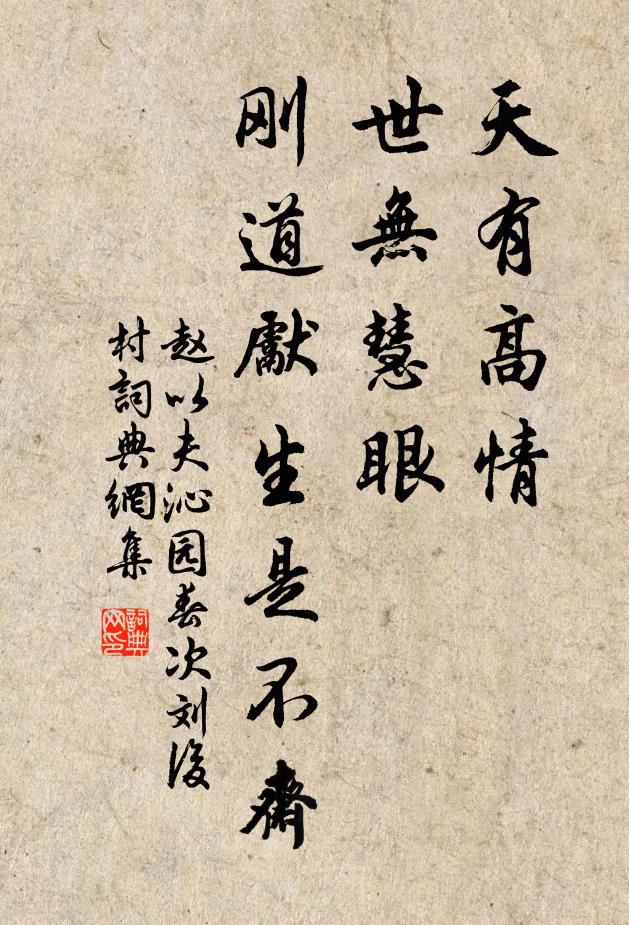 天有高情
世無慧眼
刚道獻生是不齋
赵以夫沁园春次刘後
村詞典網集
詞典
网印